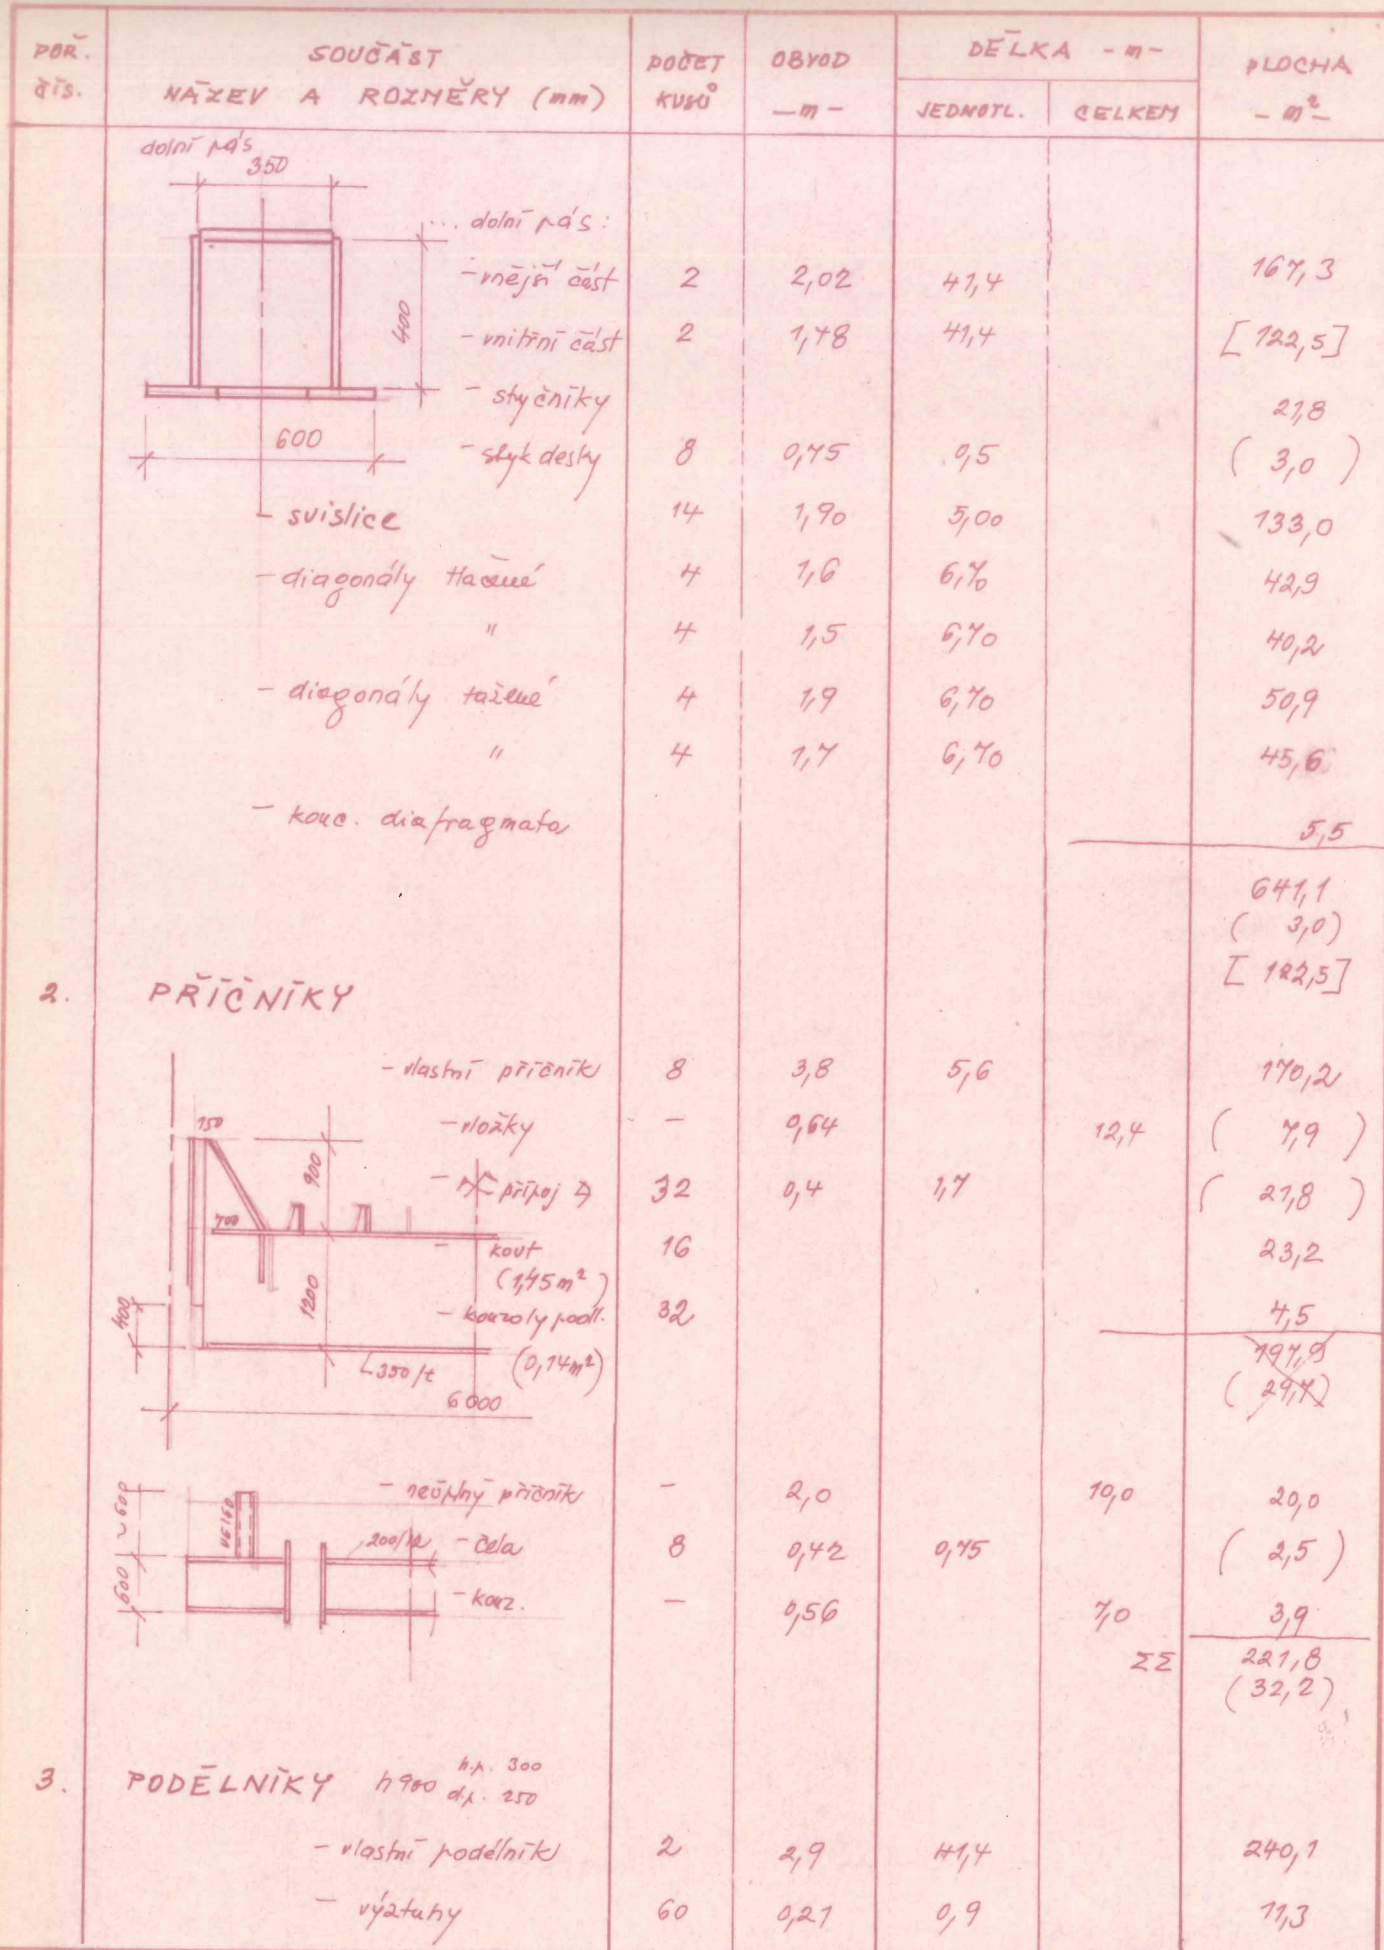 POŘ. ČÍS. SOUČÁST NÁZEV A ROZMĚRY (mm) POČET KUSŮ OBVOD -m- DÉLKA -m- JEDNOTL. CELKEM PLOCHA -m²-
dolní pás
350
... dolní pás:
400
- vnější část 2 2,02 41,4 167,3
- vnitřní část 2 1,48 41,4 [122,5]
- styčníky 21,8
600
- styk desky 8 0,75 0,5 ( 3,0 )
- svislice 14 1,90 5,00 133,0
- diagonály tlačené 4 1,6 6,70 42,9
" 4 1,5 6,70 40,2
- diagonály tažené 4 1,9 6,70 50,9
" 4 1,7 6,70 45,6
- konc. diafragmata 5,5
641,1
( 3,0)
[ 122,5]
2. PŘÍČNÍKY
- vlastní příčník 8 3,8 5,6 170,2
150
- vložky — 0,64 12,4 ( 7,9 )
900
- přípoj 32 0,4 1,7 ( 21,8 )
700
- kout 16 23,2
(1,45m²)
1200
400
- konzoly podl. 32 4,5
(0,14m²)
350/t
6000
197,9
( 29,7)
- neúplný příčník — 2,0 10,0 20,0
~600
600
200/12
- čela 8 0,42 0,75 ( 2,5 )
- konz. — 0,56 7,0 3,9
ΣΣ 221,8
(32,2)
3. PODÉLNÍKY h 900 h.p. 300
d.p. 250
- vlastní podélník 2 2,9 41,4 240,1
- výztuhy 60 0,21 0,9 11,3